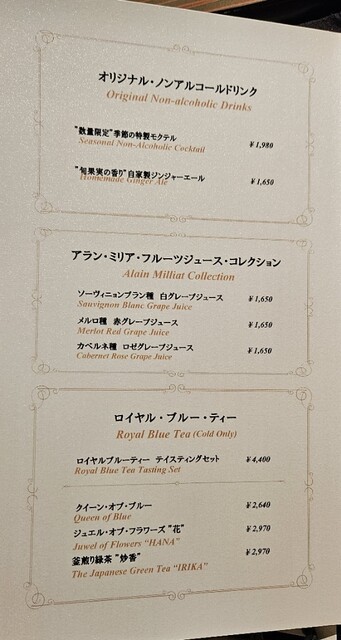 オリジナル・ノンアルコールドリンク
Original Non-alcoholic Drinks
"数量限定"季節の特製モクテル ¥1,980
Seasonal Non-Alcoholic Cocktail
"旬果実の香り"自家製ジンジャーエール ¥1,650
Homemade Ginger Ale
アラン・ミリア・フルーツジュース・コレクション
Alain Milliat Collection
ソーヴィニョンブラン種 白グレープジュース ¥1,650
Sauvignon Blanc Grape Juice
メルロ種 赤グレープジュース ¥1,650
Merlot Red Grape Juice
カベルネ種 ロゼグレープジュース ¥1,650
Cabernet Rose Grape Juice
ロイヤル・ブルー・ティー
Royal Blue Tea (Cold Only)
ロイヤルブルーティー テイスティングセット ¥4,400
Royal Blue Tea Tasting Set
クイーン・オブ・ブルー ¥2,640
Queen of Blue
ジュエル・オブ・フラワーズ"花" ¥2,970
Juwel of Flowers "HANA"
釜煎り緑茶"炒香" ¥2,970
The Japanese Green Tea "IRIKA"